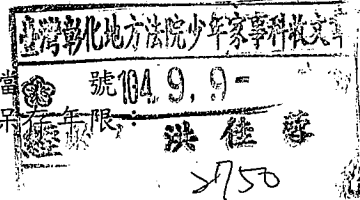 臺灣彰化地方法院少年家事科收文章
號 104. 9. 9-
保存年限：
洪佳蓉
2750